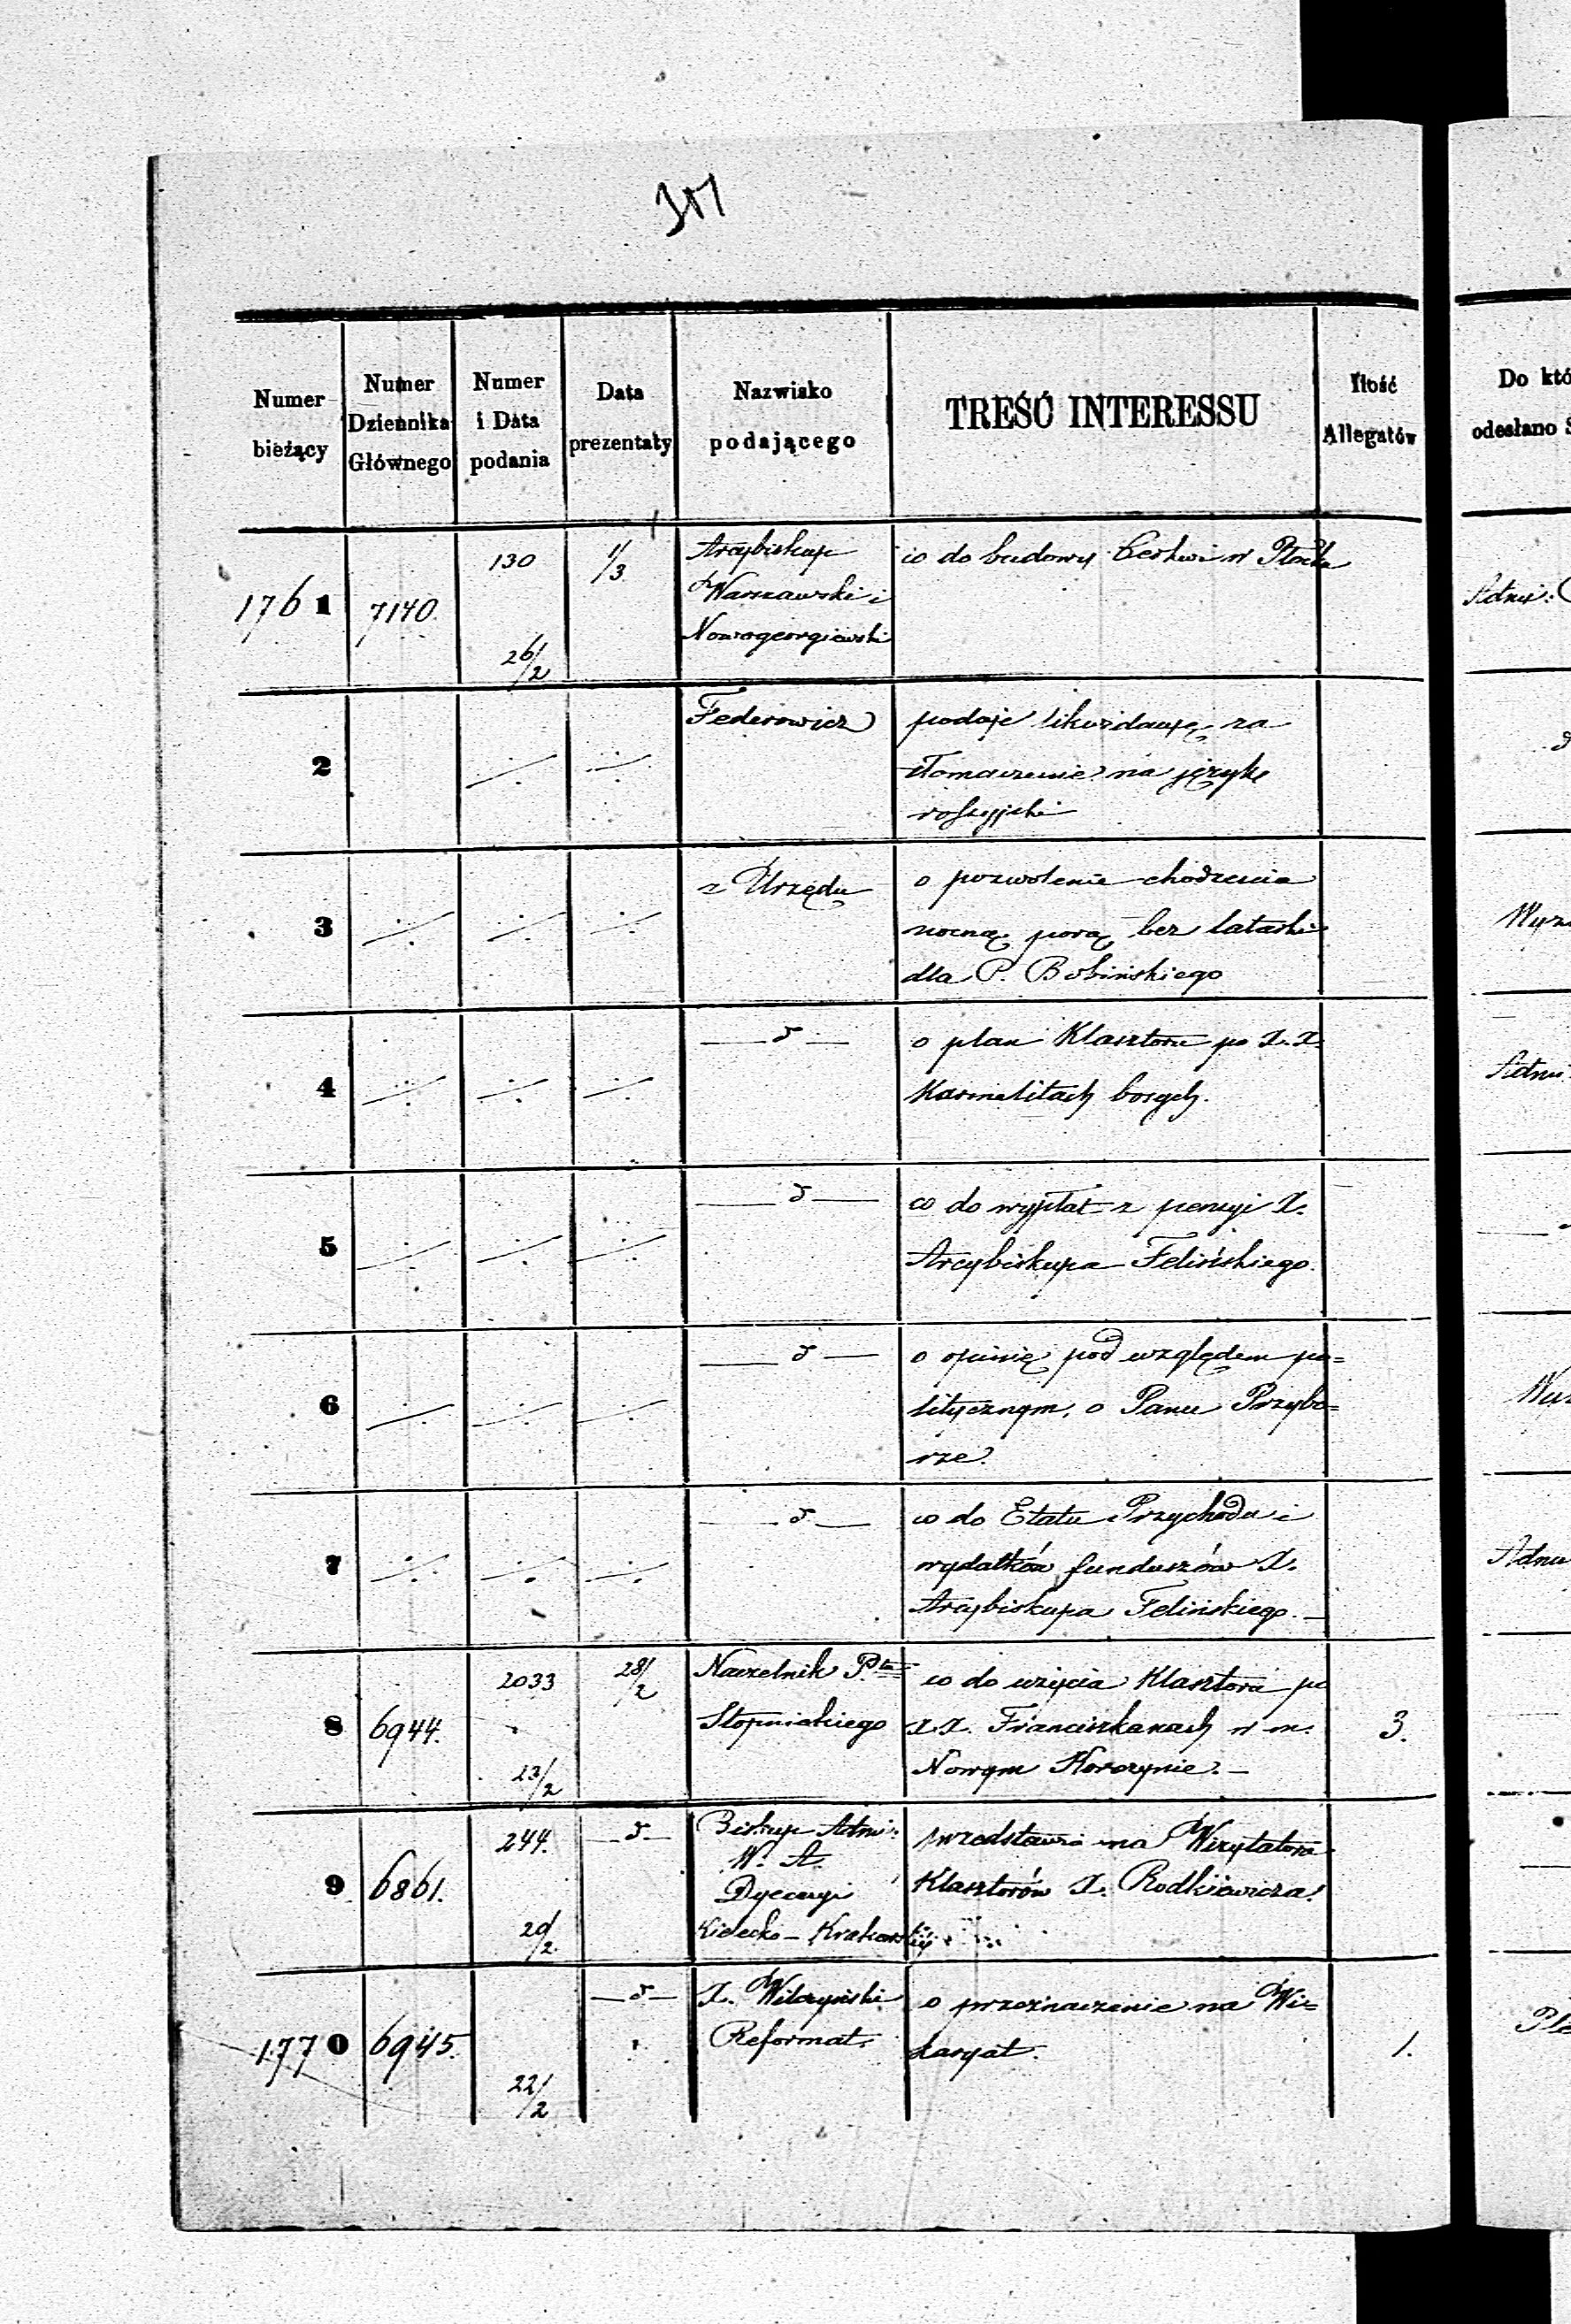 Numer bieżący
Numer Dziennika Głównego
Numer i Data podania
Data prezentaty
Nazwisko podającego
TREŚĆ INTERESSU
Ilość Allegatów
Do któ
odesłano S
1761 7140. 130 26/2 1/3
Arcybiskup
Warszawski i
Nowogeorgiewski
co do budowy Cerkwi w Płocku
Admi:
2
Federowicz
podaje likwidacyę za
tłomaczenie na język
rossyjski
3
z Urzędu
o pozwolenie chodzenia
nocną porą bez latarki
dla P. Bobińskiego
Wyz
4
— d —
o plan Klasztoru po X.X.
Karmelitach bosych.
Admi
5
— d —
co do wypłat z pensyi X.
Arcybiskupa Felińskiego.
6
— d —
o opinię pod względem po=
litycznym, o Panu Przybo=
rze.
Wyz
7
— d —
co do Etatu Przychodu i
wydatków funduszów X.
Arcybiskupa Felińskiego. —
Admi
8 6944. 2033 23/2 28/2
Naczelnik Ptu
Stopnickiego
co do użycia Klasztoru po
X.X. Franciszkanach w m.
Nowym Korczynie. —
3.
9 6861. 244. 20/2 — d —
Biskup Admi:
W. A.
Dyecezyi
Kielecko - Krakowskiej
przedstawia na Wizytatora
Klasztorów X. Rodkiewicza.
1770 6945. 22/2 — d —
X. Wilczyński
Reformat.
o przeznaczenie na Wi=
karyat.
1.